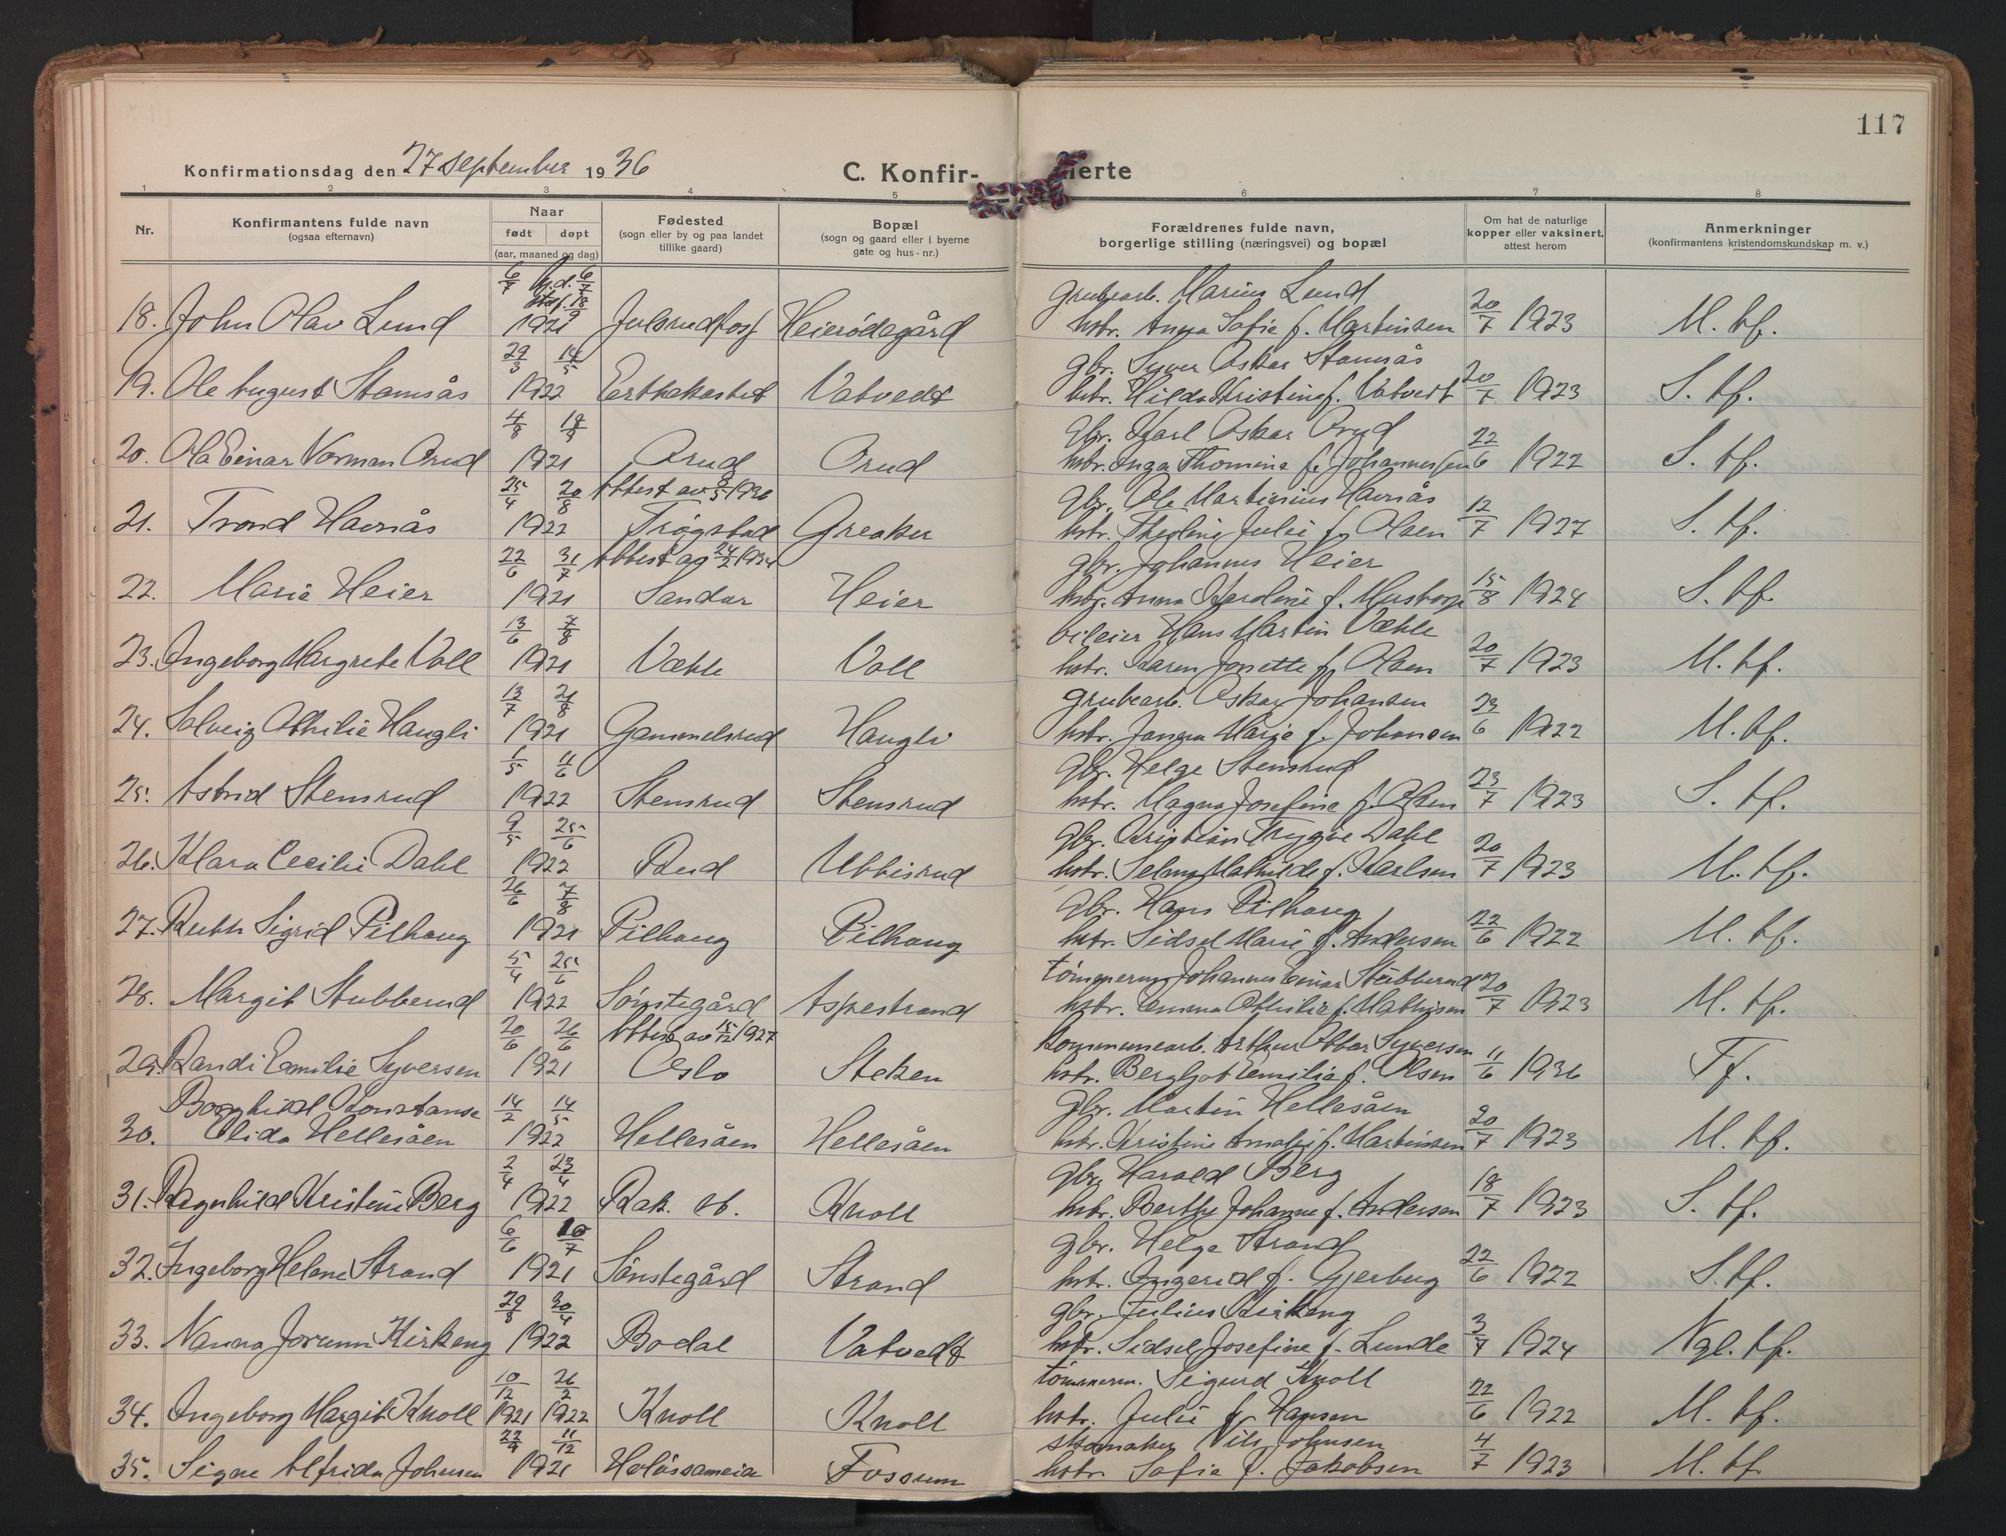 117
Konfirmationsdag den 27 september 1936
C. Konfir- merte
1 2 3 4 5 6 7 8
Nr.
Konfirmantens fulde navn
(ogsaa efternavn)
Naar
født døpt
(aar, maaned og dag)
Fødested
(sogn eller by og paa landet
tillike gaard)
Bopæl
(sogn og gaard eller i byerne
gate og hus-nr.)
Forældrenes fulde navn,
borgerlige stilling (næringsvei) og bopæl
Om hat de naturlige
kopper eller vaksinert,
attest herom
Anmerkninger
(konfirmantens kristendomskundskap m. v.)
6/7 hj.d. 6/7 grubearb. Marius Lund
18. John Olav Lund 1921 Heierødegård hstr. Anna Sofie f. Martinsen 20/7 1923 M. tf.
29/3 14/5 gbr. Syver Oskar Stamsås
19. Ole August Stamsås 1922 Vatvedt hstr. Hilda Kristine f. Vatvedt 20/7 1923 S. tf.
4/8 18/9 gbr. Karl Oskar Orud
20. Ola Einar Norman Orud 1921 Orud Orud hstr. Inga Thomine f. Johannessen 22/6 1922 S. tf.
25/4 20/8 Attest av 8/5 1936 gbr. Ole Martinius Havnås
21. Trond Havnås 1922 Trøgstad Greaker hstr. Theoline Julie f. Olsen 12/7 1927 S. tf.
22/6 31/7 Attest av 24/2 gbr. Johannes Heier
22. Marie Heier 1921 Sandar Heier hstr. Anna Karoline f. 15/8 1924 S. tf.
13/6 7/8 bileier Hans Martin Vækle
23. Ingeborg Margrete Voll 1921 Vækle Voll hstr. Karen Josette f. Olsen 20/7 1923 M. tf.
13/7 21/8 grubearb. Oskar Johansen
24. Solveig Othilie Haugli 1921 Gammelsrud Haugli hstr. Janna Marie f. Johansen 23/6 1922 M. tf.
1/5 11/6 gbr. Helge Stensrud
25. Astrid Stensrud 1922 Stensrud Stensrud hstr. Magna Josefine f. Olsen 23/7 1923 S. tf.
9/5 25/6 gbr. Kristian Trygve Dahl
26. Klara Cecilie Dahl 1922 Rud Ubbisrud hstr. Selma Mathilde f. Karlsen 20/7 1923 M. tf.
26/6 7/8 gbr. Hans Pilhaug
27. Ruth Sigrid Pilhaug 1921 Pilhaug Pilhaug hstr. Sidsel Marie f. Andersen 22/6 1922 M. tf.
5/4 25/6 tømmerm. Johannes Einar Stubberud
28. Margit Stubberud 1922 Sønstegård Aspestrand hstr. Emma Othilie f. Mathisen 20/7 1923 M. tf.
20/6 26/6 Attest av 15/12 1927 kommunearb. Arthur Ottar Syversen
29. Randi Emilie Syversen 1921 Oslo Steken hstr. Bergljot Emilie f. Olsen 11/6 1936 Tf.
Borghild Konstanse 14/2 14/5 gbr. Martin Hellesåen
30. Elida Hellesåen 1922 Hellesåen Hellesåen hstr. Kristine Amalie f. Martinsen 20/7 1923 M. tf.
2/4 23/4 gbr. Harald Berg
31. Ragnhild Kristine Berg 1922 Rak. st. Knoll hstr. Berthe Johanne f. Andersen 18/7 1923 S. tf.
6/6 10/7 gbr. Helge Strand
32. Ingeborg Helene Strand 1921 Sønstegård Strand hstr. Ingerid f. Gjerberg 22/6 1922 S. tf.
gbr. Julius Kirkeng
33. Nanna Jorunn Kirkeng 1922 Bodal Vatvedt hstr. Sidsel Josefine f. Lunde 3/7 1924 Ngl. tf.
10/12 26/2 tømmerm. Sigurd Knoll
34. Ingeborg Margit Knoll 1921 1922 Knoll Knoll hstr. Julie f. Hansen 22/6 1922 M. tf.
22/9 11/12 skomaker Nils Johnsen
35. Signe Alfrida Johnsen 1921 Fossum hstr. Sofie f. Jakobsen 4/7 1923 M. tf.